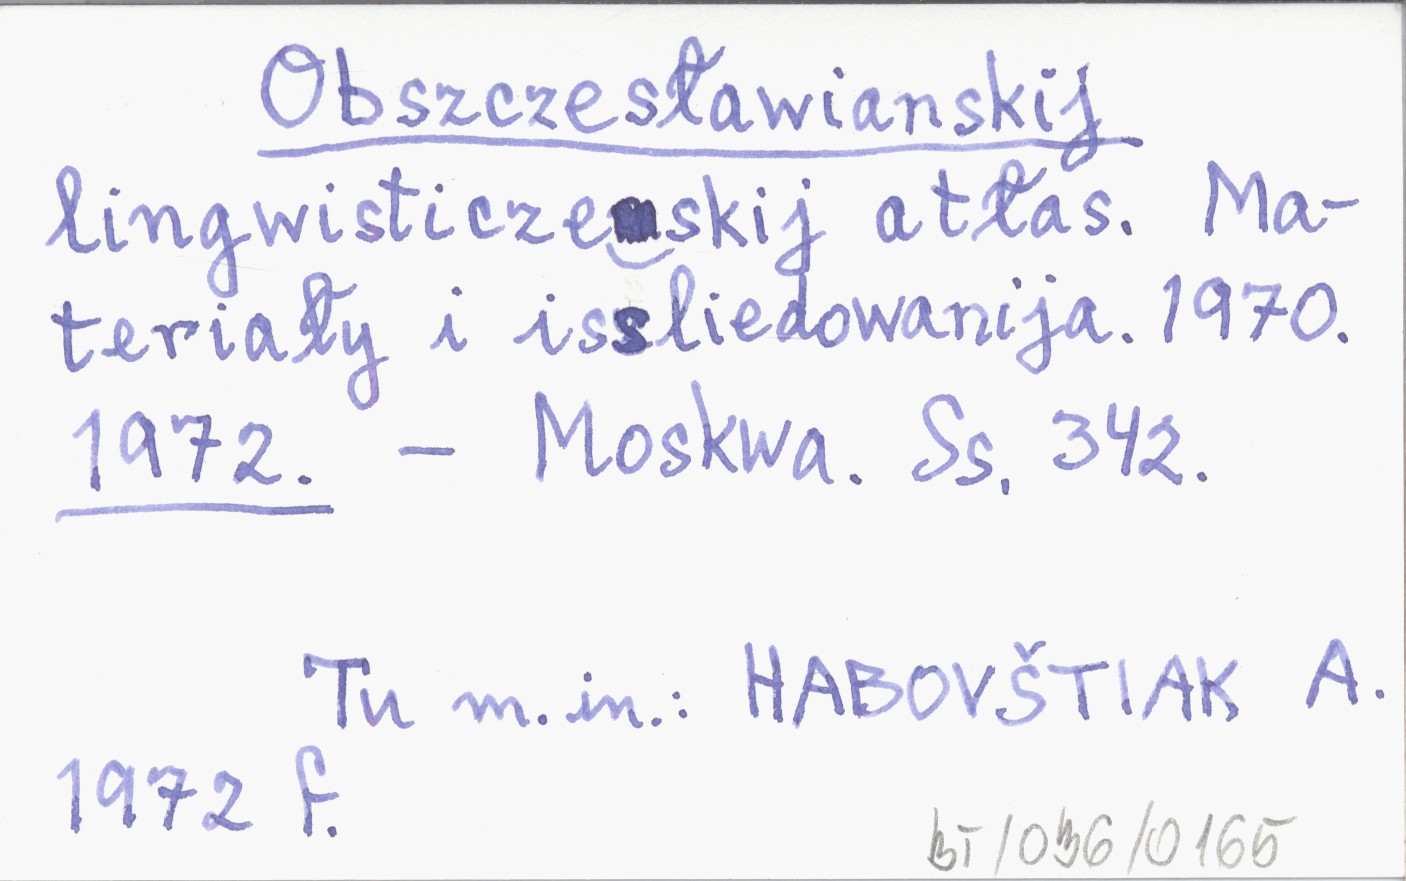 Obszczesławianskij
lingwisticzeskij atłas. Ma-
teriały i issliedowanija. 1970.
1972. - Moskwa. Ss, 342.
Tu m.in.: HABOVŠTIAK A.
1972 f.
BT/036/0165